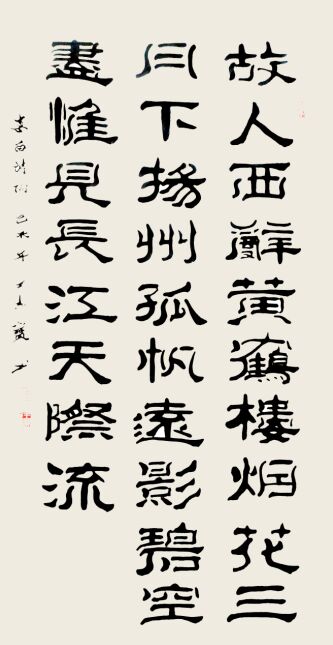 故人西辭黃鶴樓烟花三
月下揚州孤帆遠影碧空
盡惟見長江天際流
李白詩